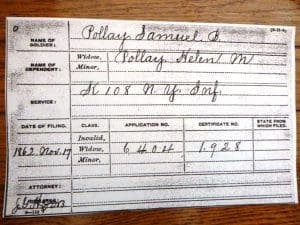 Pollay Samuel B.
NAME OF SOLDIER:
NAME OF DEPENDENT: Widow, Pollay Helen M
Minor,
SERVICE: K 108 N.Y. Inf.
DATE OF FILING. CLASS. APPLICATION NO. CERTIFICATE NO. STATE FROM WHICH FILED.
Invalid,
1862. Nov. 17 Widow, 6404 1.928
Minor,
ATTORNEY: